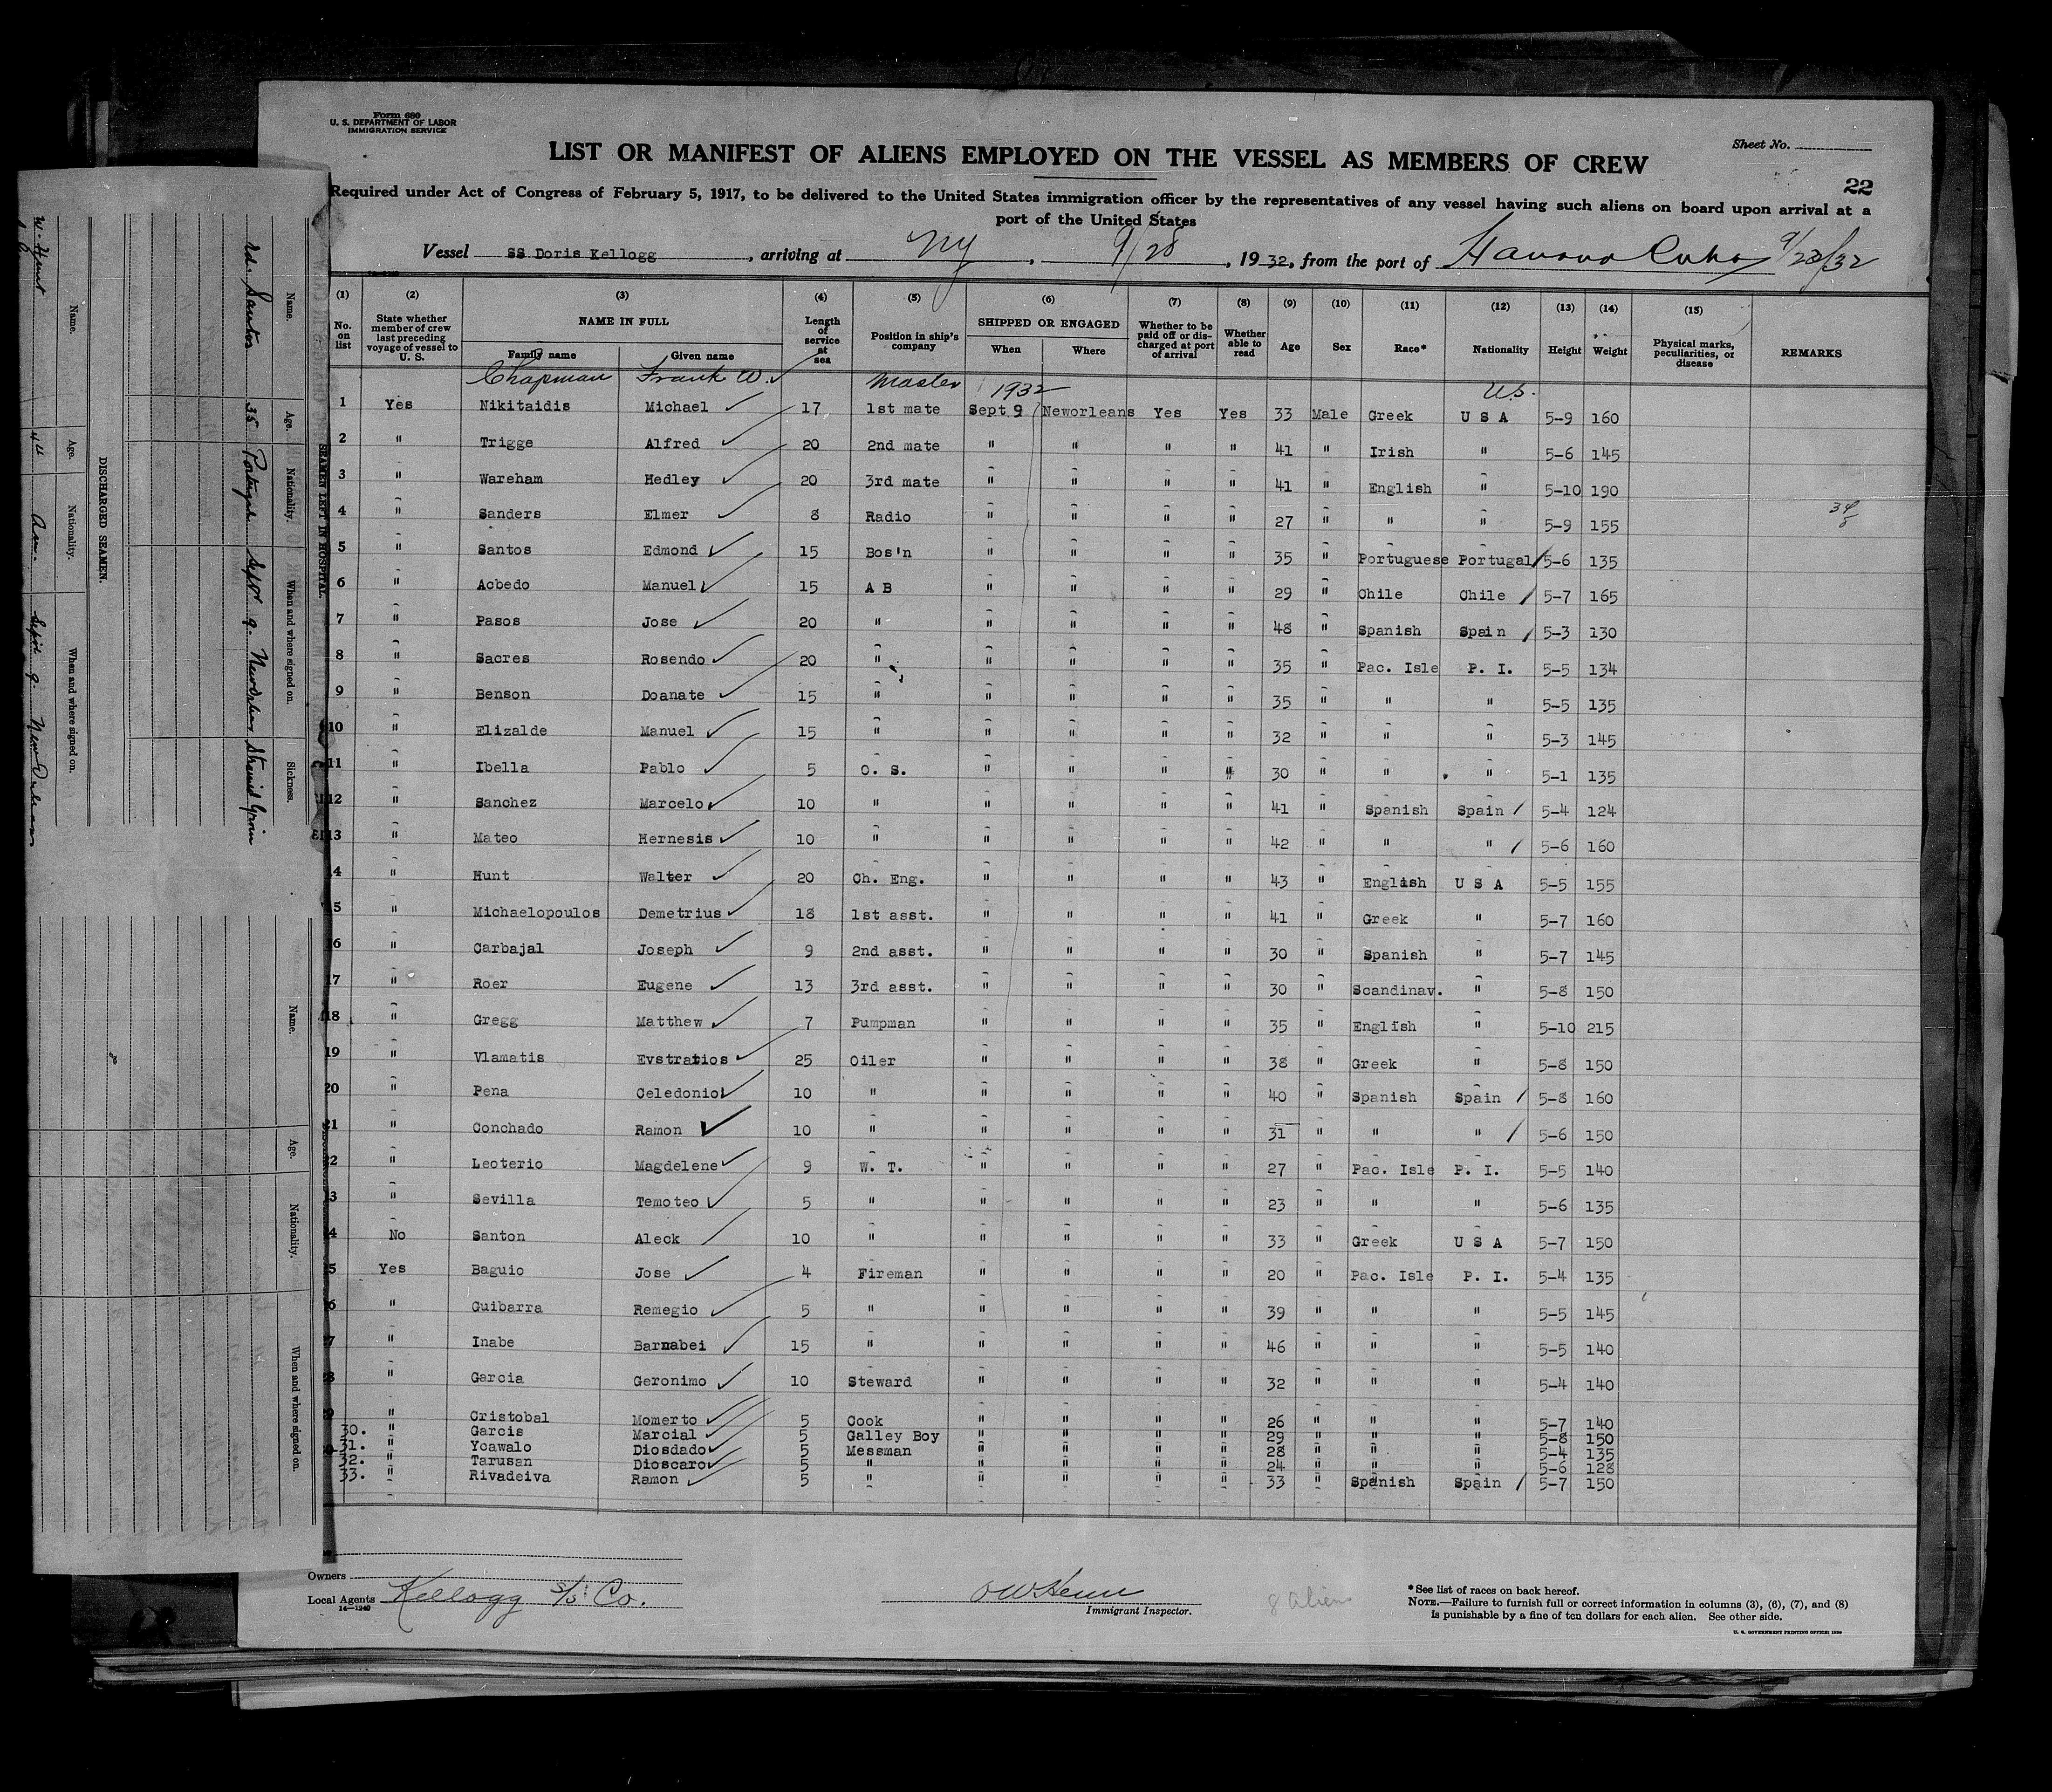 Form 680
U. S. DEPARTMENT OF LABOR
IMMIGRATION SERVICE
Sheet No.
LIST OR MANIFEST OF ALIENS EMPLOYED ON THE VESSEL AS MEMBERS OF CREW
22
Required under Act of Congress of February 5, 1917, to be delivered to the United States immigration officer by the representatives of any vessel having such aliens on board upon arrival at a
port of the United States
Vessel SS Doris Kellogg, arriving at NY, 9/28, 1932, from the port of Havana Cuba 9/23/32
(1) (2) (3) (4) (5) (6) (7) (8) (9) (10) (11) (12) (13) (14) (15)
No. on list State whether member of crew last preceding voyage of vessel to U. S. NAME IN FULL Family name Given name Length of service at sea Position in ship's company SHIPPED OR ENGAGED When Where Whether to be paid off or discharged at port of arrival Whether able to read Age Sex Race* Nationality Height Weight Physical marks, peculiarities, or disease REMARKS
Chapman Frank W. Master 1932 U.S.
1 Yes Nikitaidis Michael 17 1st mate Sept 9 Neworleans Yes Yes 33 Male Greek U S A 5-9 160
2 " Trigge Alfred 20 2nd mate " " " " 41 " Irish " 5-6 145
3 " Wareham Hedley 20 3rd mate " " " " 41 " English " 5-10 190
4 " Sanders Elmer 8 Radio " " " " 27 " " " 5-9 155
5 " Santos Edmond 15 Bos'n " " " " 35 " Portuguese Portugal 5-6 135
6 " Acbedo Manuel 15 A B " " " " 29 " Chile Chile 5-7 165
7 " Pasos Jose 20 " " " " " 48 " Spanish Spain 5-3 130
8 " Sacres Rosendo 20 " " " " " 35 " Pac. Isle P. I. 5-5 134
9 " Benson Doanate 15 " " " " " 35 " " " 5-5 135
10 " Elizalde Manuel 15 " " " " " 32 " " " 5-3 145
11 " Ibella Pablo 5 O. S. " " " " 30 " " " 5-1 135
12 " Sanchez Marcelo 10 " " " " " 41 " Spanish Spain 5-4 124
13 " Mateo Hernesis 10 " " " " " 42 " " " 5-6 160
14 " Hunt Walter 20 Ch. Eng. " " " " 43 " English U S A 5-5 155
15 " Michaelopoulos Demetrius 18 1st asst. " " " " 41 " Greek " 5-7 160
16 " Carbajal Joseph 9 2nd asst. " " " " 30 " Spanish " 5-7 145
17 " Roer Eugene 13 3rd asst. " " " " 30 " Scandinav. " 5-8 150
18 " Gregg Matthew 7 Pumpman " " " " 35 " English " 5-10 215
19 " Vlamatis Evstratios 25 Oiler " " " " 38 " Greek " 5-8 150
20 " Pena Celedonio 10 " " " " " 40 " Spanish Spain 5-8 160
21 " Conchado Ramon 10 " " " " " 31 " " " 5-6 150
2 " Leoterio Magdelene 9 W. T. " " " " 27 " Pac. Isle P. I. 5-5 140
3 " Sevilla Temoteo 5 " " " " " 23 " " " 5-6 135
4 No Santon Aleck 10 " " " " " 33 " Greek U S A 5-7 150
5 Yes Baguio Jose 4 Fireman " " " " 20 " Pac. Isle P. I. 5-4 135
6 " Guibarra Remegio 5 " " " " " 39 " " " 5-5 145
7 " Inabe Barnabei 15 " " " " " 46 " " " 5-5 140
8 " Garcia Geronimo 10 Steward " " " " 32 " " " 5-4 140
9 " Cristobal Momerto 5 Cook " " " " 26 " " " 5-7 140
30. " Garcis Marcial 5 Galley Boy " " " " 29 " " " 5-8 150
31. " Ycawalo Diosdado 5 Messman " " " " 28 " " " 5-4 135
32. " Tarusan Dioscaro 5 " " " " " 24 " " " 5-6 128
33. " Rivadeiva Ramon 5 " " " " " 33 " Spanish Spain 5-7 150
Owners
Local Agents Kellogg S/S Co.
14-1240
Immigrant Inspector.
8 aliens
*See list of races on back hereof.
NOTE.—Failure to furnish full or correct information in columns (3), (6), (7), and (8)
is punishable by a fine of ten dollars for each alien. See other side.
U. S. GOVERNMENT PRINTING OFFICE: 1930
SEAMEN LEFT IN HOSPITAL.
Name. Age. Nationality. When and where signed on. Sickness.
Ed. Santos 35 Portugal Sept 9. New Orleans Strained Groin
DISCHARGED SEAMEN.
Name. Age. Nationality. When and where signed on.
W. Hunt 44 Am. Sept 9. New Orleans
Name. Age. Nationality. When and where signed on.